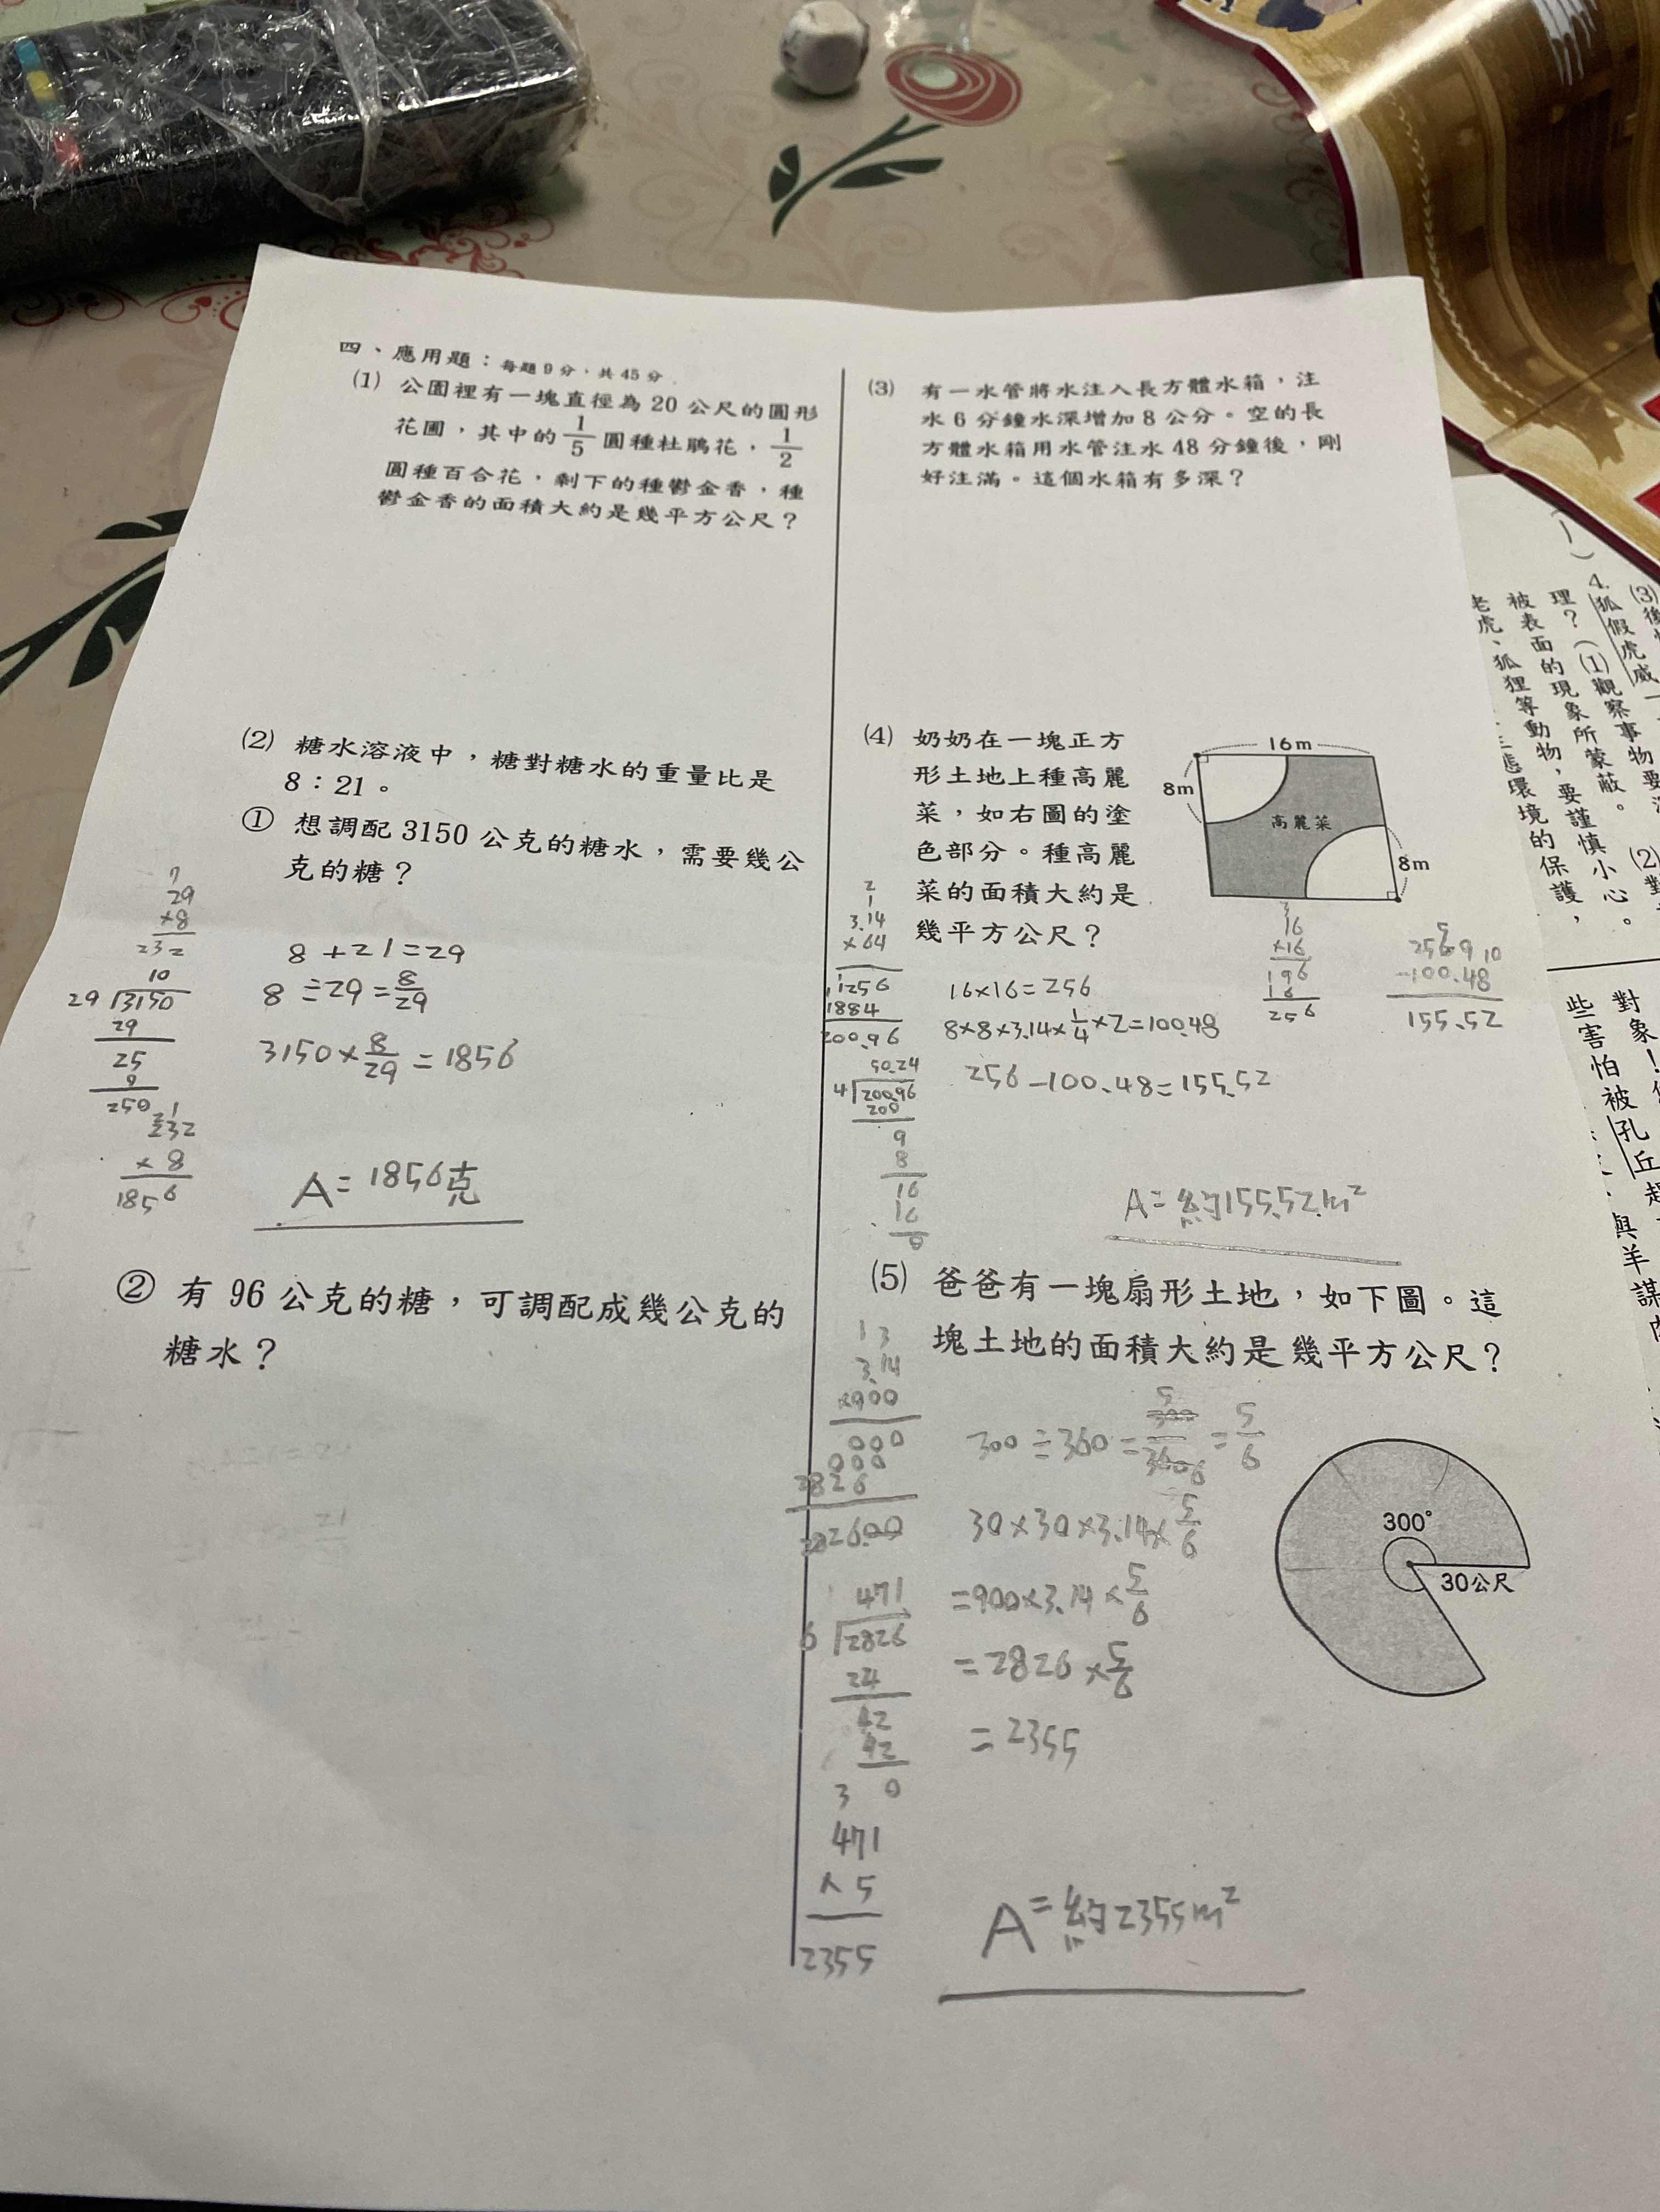 四、應用題：每題9分，共45分
(1) 公園裡有一塊直徑為20公尺的圓形
花圃，其中的1/5圓種杜鵑花，1/2
圓種百合花，剩下的種鬱金香，種
鬱金香的面積大約是幾平方公尺？
(2) 糖水溶液中，糖對糖水的重量比是
8：21。
① 想調配3150公克的糖水，需要幾公
克的糖？
7
29
×8
232
10
29 3150
29
25
0
250
21
232
× 8
1856
8+21=29
8÷29=8/29
3150×8/29=1856
A=1856克
② 有96公克的糖，可調配成幾公克的
糖水？
(3) 有一水管將水注入長方體水箱，注
水6分鐘水深增加8公分。空的長
方體水箱用水管注水48分鐘後，剛
好注滿。這個水箱有多深？
(4) 奶奶在一塊正方
形土地上種高麗
菜，如右圖的塗
色部分。種高麗
菜的面積大約是
幾平方公尺？
16m
8m
高麗菜
8m
2
1
3.14
×64
1256
1884
200.96
50.24
4 200.96
200
9
8
16
16
0
16×16=256
8×8×3.14×1/4×2=100.48
256-100.48=155.52
3
16
×16
196
16
256
5
256.9 10
-100.48
155.52
A=約155.52m²
(5) 爸爸有一塊扇形土地，如下圖。這
塊土地的面積大約是幾平方公尺？
300°
30公尺
13
3.14
×900
000
000
2826
2826.00
471
6 2826
24
42
42
0
3
471
×5
2355
300÷360=300/360=5/6
30×30×3.14×5/6
=900×3.14×5/6
=2826×5/6
=2355
A=約2355m²
4.狐假虎威
理？(1)觀察事物要
被表面的現象所蒙蔽。
老虎、狐狸等動物，要謹慎小心。
態環境的保護，
對象！
些害怕被孔丘
與羊謀